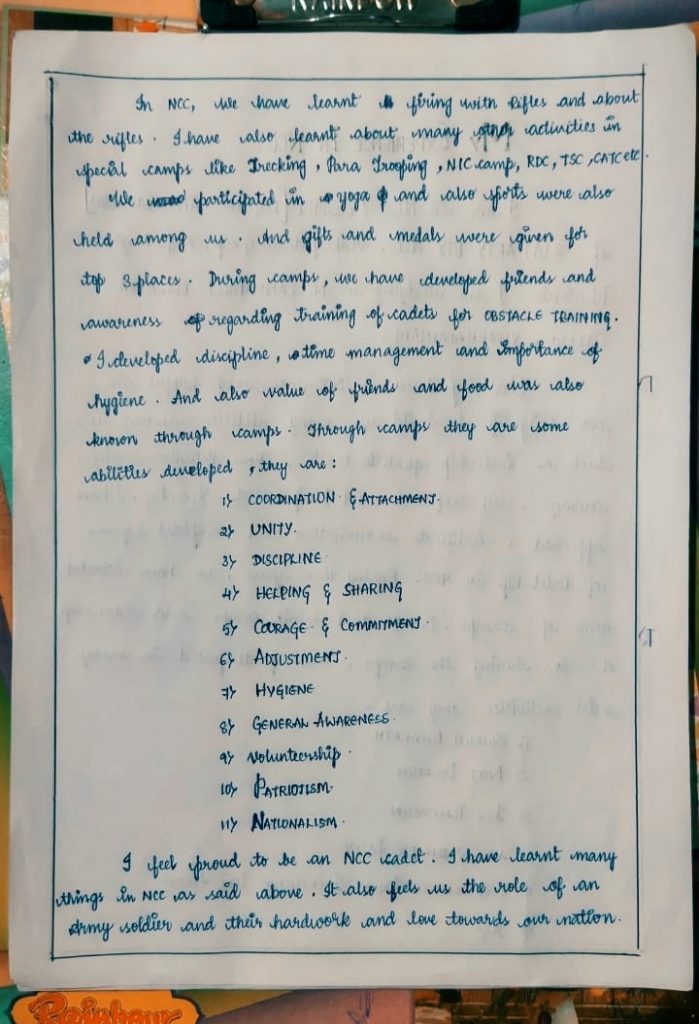 RAINBOW
In NCC, We have learnt firing with Rifles and about
the rifles. I have also learnt about many other activities in
special camps like Trecking, Para Trooping, NIC camp, RDC, TSC, CATC etc.
We participated in yoga and also sports were also
held among us. And gifts and medals were given for
top 3 places. During camps, we have developed friends and
awareness of regarding training of cadets for OBSTACLE TRAINING.
I developed discipline, time management and Importance of
hygiene. And also value of friends and food was also
known through camps. Through camps they are some
abilities developed, they are:
1) COORDINATION & ATTACHMENT.
2) UNITY.
3) DISCIPLINE
4) HELPING & SHARING
5) COURAGE & COMMITMENT.
6) ADJUSTMENT.
7) HYGIENE
8) GENERAL AWARENESS.
9) Volunteership.
10) PATRIOTISM.
11) NATIONALISM.
I feel proud to be an NCC cadet. I have learnt many
things in NCC as said above. It also feels us the role of an
Army soldier and their hardwork and love towards our nation.
Rainbow